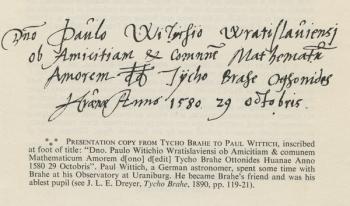 Dno Paulo Witichio Wratislauiensi
ob Amicitiam & comune Mathematu
Amorem dd Tycho Brahe Ottonides
Huanæ Anno 1580 29 octobris.
*** PRESENTATION COPY FROM TYCHO BRAHE TO PAUL WITTICH, inscribed
at foot of title: “Dno. Paulo Witichio Wratislaviensi ob Amicitiam & comunem
Mathematicum Amorem d[ono] d[edit] Tycho Brahe Ottonides Huanae Anno
1580 29 Octobris”. Paul Wittich, a German astronomer, spent some time with
Brahe at his Observatory at Uraniburg. He became Brahe's friend and was his
ablest pupil (see J. L. E. Dreyer, Tycho Brahe, 1890, pp. 119-21).